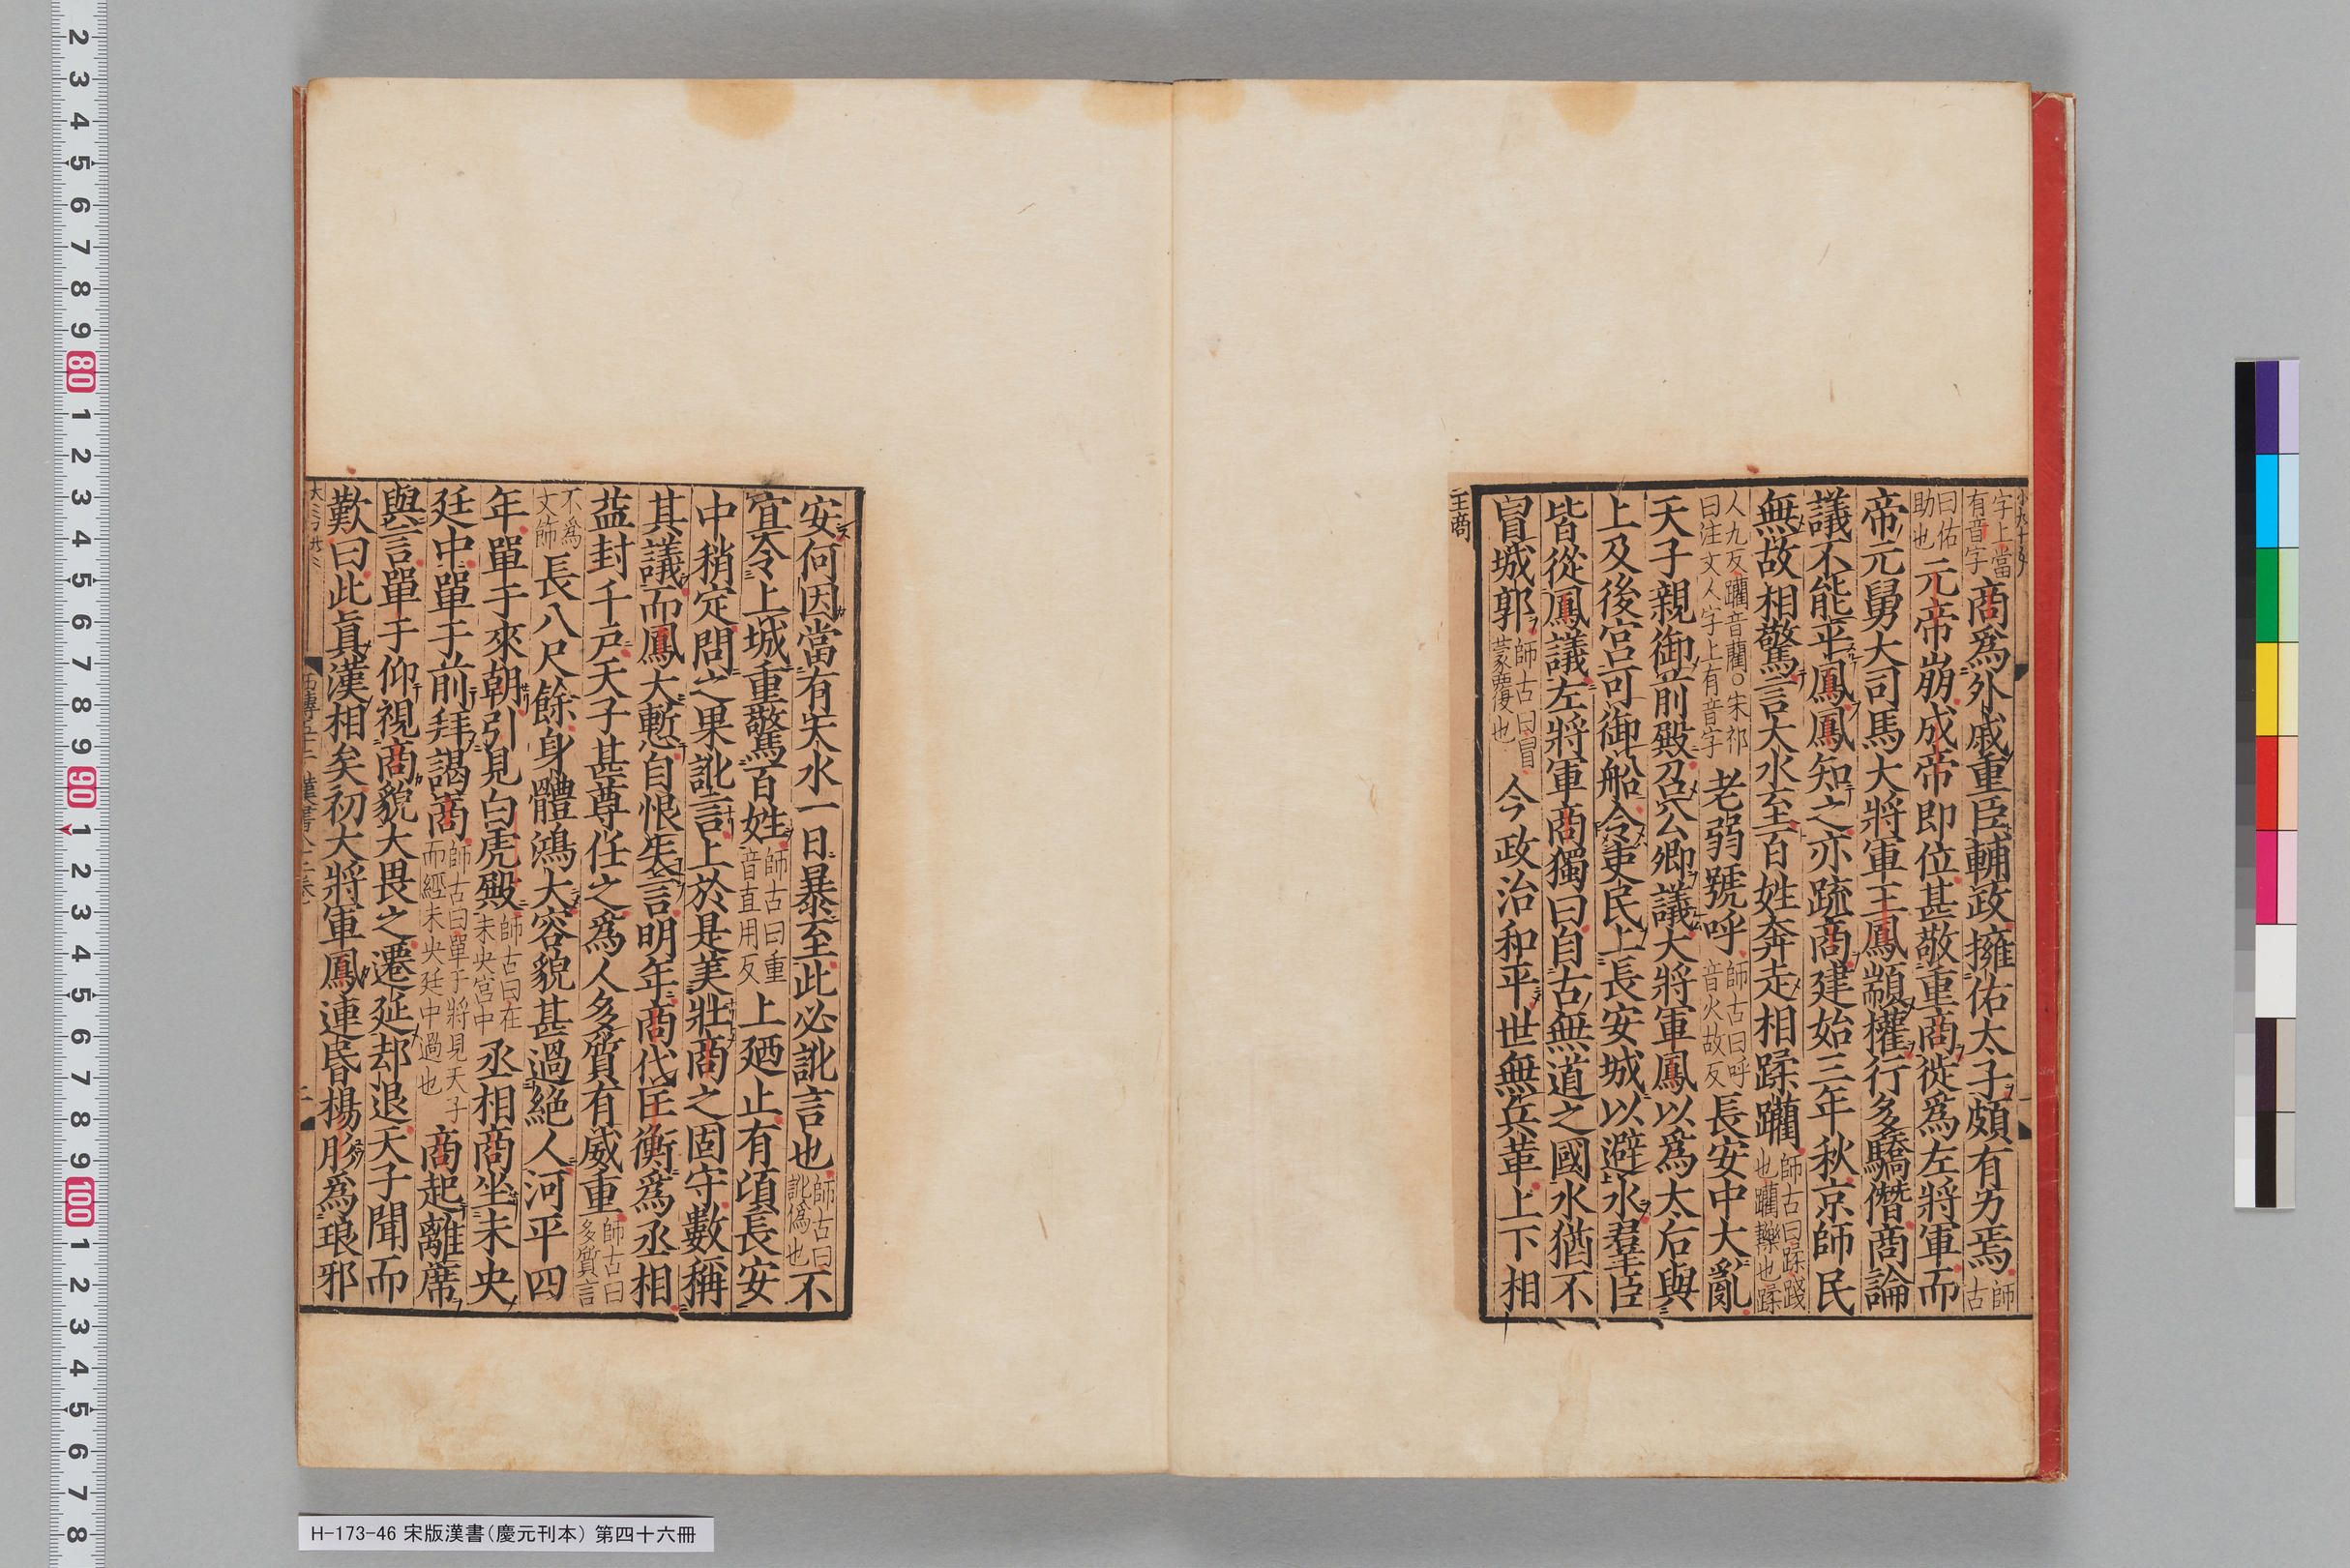 字上當有音字商爲外戚重臣輔政擁佑太子頗有力焉師古
曰佑助也元帝崩成帝即位甚敬重商徙爲左將軍而
帝元舅大司馬大將軍王鳳顓權行多驕僭商論
議不能平鳳鳳知之亦疏商建始三年秋京師民
無故相驚言大水至百姓奔走相蹂躪師古曰蹂踐也躪轢也蹂
人九反躪音藺○宋祁曰注文人字上有音字老弱號呼師古曰呼音火故反長安中大亂
天子親御前殿召公卿議大將軍鳳以爲太后與
上及後宮可御船令吏民上長安城以避水羣臣
皆從鳳議左將軍商獨曰自古無道之國水猶不
冒城郭師古曰冒蒙覆也今政治和平世無兵革上下相
王商
安何因當有大水一日暴至此必訛言也師古曰訛僞也不
宜令上城重驚百姓師古曰重音直用反上廼止有頃長安
中稍定問之果訛言上於是美壯商之固守數稱
其議而鳳大慙自恨失言明年商代匡衡爲丞相
益封千戶天子甚尊任之爲人多質有威重師古曰多質言
不爲文飾長八尺餘身體鴻大容貌甚過絕人河平四
年單于來朝引見白虎殿師古曰在未央宮中丞相商坐未央
廷中單于前拜謁商師古曰單于將見天子而經未央廷中過也商起離席
與言單于仰視商貌大畏之遷延却退天子聞而
歎曰此眞漢相矣初大將軍鳳連昏楊肜爲琅邪
H-173-46 宋版漢書（慶元刊本） 第四十六冊
2
3
4
5
6
7
8
9
80
1
2
3
4
5
6
7
8
9
90
1
2
3
4
5
6
7
8
9
100
1
2
3
4
5
6
7
8